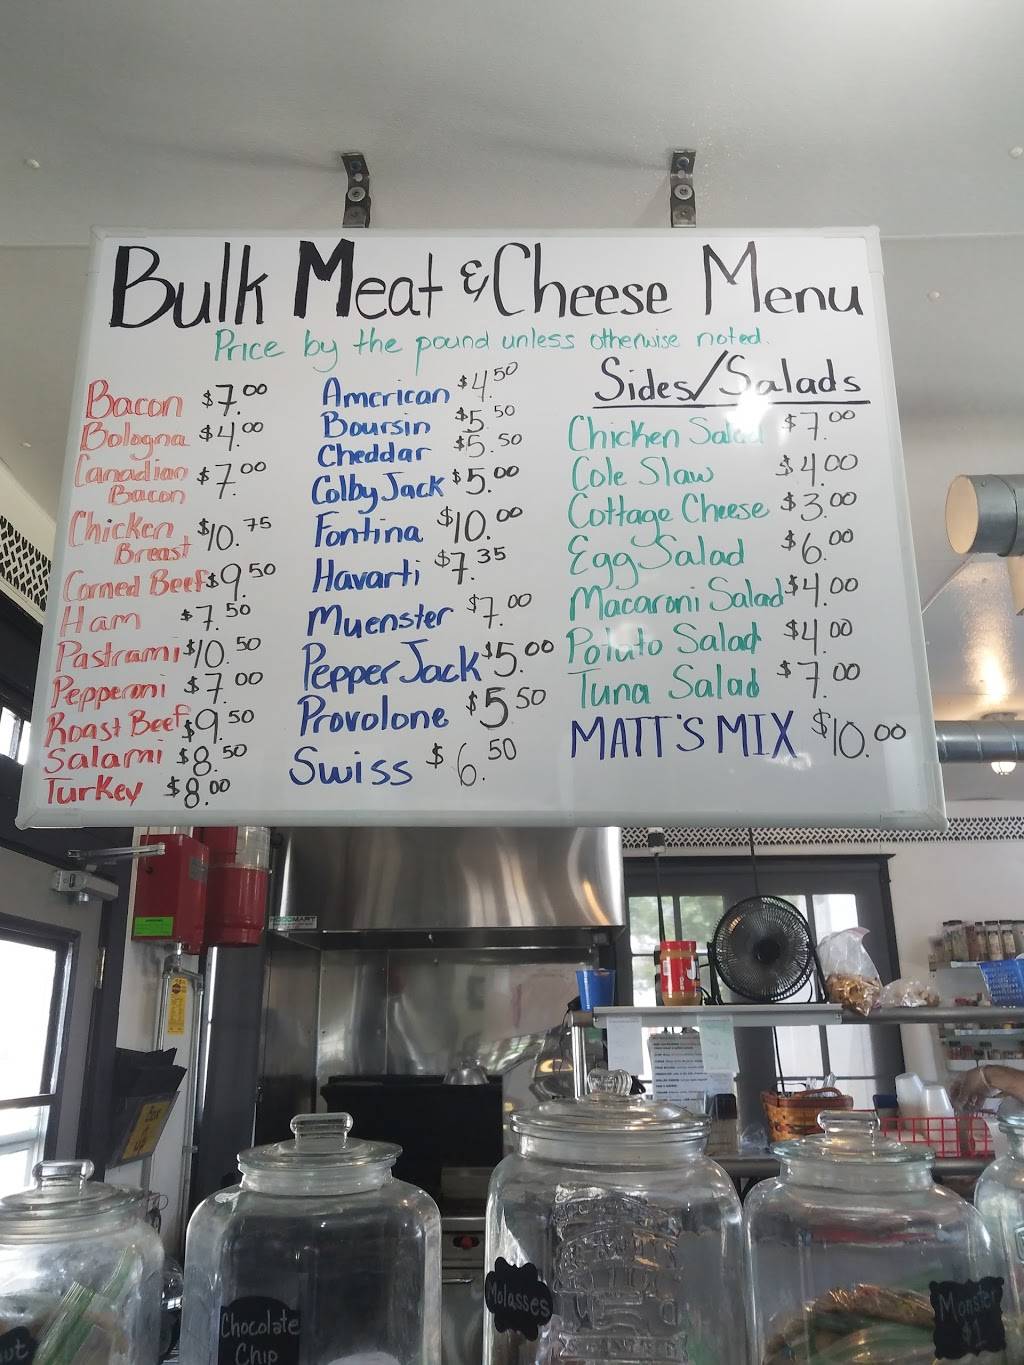 Bulk Meat & Cheese Menu
Price by the pound unless otherwise noted.
Bacon $7.00
Bologna $4.00
Canadian
Bacon $7.00
Chicken
Breast $10.75
Corned Beef $9.50
Ham $7.50
Pastrami $10.50
Pepperoni $7.00
Roast Beef $9.50
Salami $8.50
Turkey $8.00
American $4.50
Boursin $5.50
Cheddar $5.50
Colby Jack $5.00
Fontina $10.00
Havarti $7.35
Muenster $7.00
Pepper Jack $5.00
Provolone $5.50
Swiss $6.50
Sides/Salads
Chicken Salad $7.00
Cole Slaw $4.00
Cottage Cheese $3.00
Egg Salad $6.00
Macaroni Salad $4.00
Potato Salad $4.00
Tuna Salad $7.00
MATT'S MIX $10.00
Chocolate
Chip
Molasses
Monster
$1